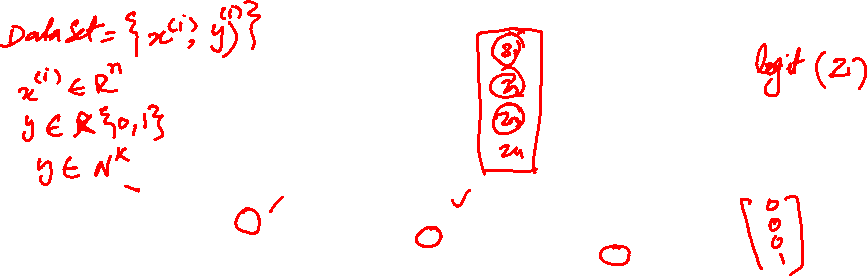 Dataset = { x^(i), y^(i) }
x^(i) ∈ R^n
y ∈ R{0,1}
y ∈ N^K
z1
z2
z3
z4
logit (Zi)
0
0
0
1